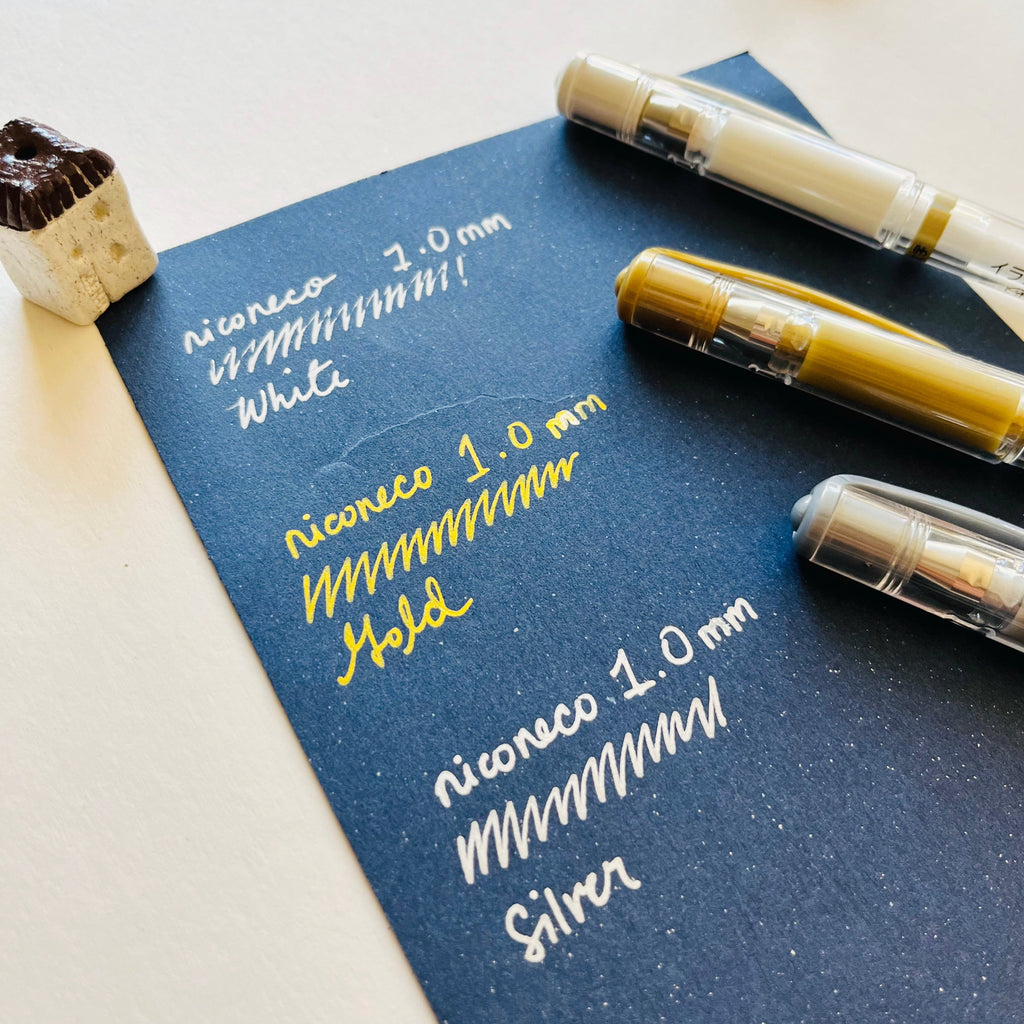 niconeco 1.0 mm
!
White
niconeco 1.0 mm
Gold
niconeco 1.0 mm
Silver
イラ